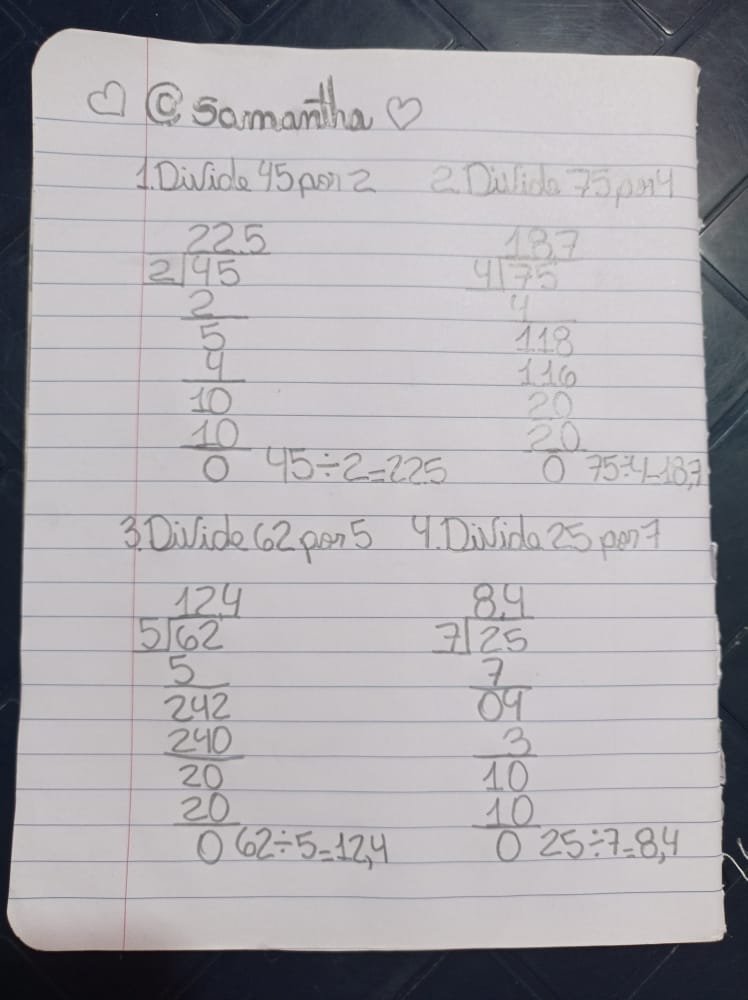 ♡ @Samantha ♡
1.Divide 45 por 2
22.5
2|45
2
5
4
10
10
0 45÷2=22.5
2.Divide 75 por 4
18,7
4|75
4
118
116
20
20
0 75÷4=18,7
3.Divide 62 por 5
12,4
5|62
5
242
240
20
20
0 62÷5=12,4
4.Divide 25 por 7
8,4
7|25
7
04
3
10
10
0 25÷7=8,4